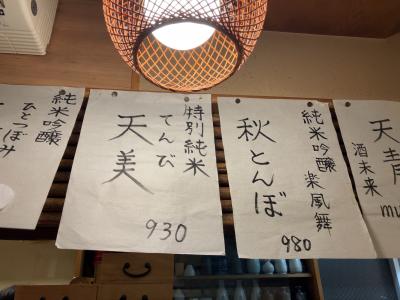 純米吟醸
ひとつぼみ
特別純米
てんび
天美
930
純米吟醸 楽風舞
秋とんぼ
980
天青
酒未来
mu